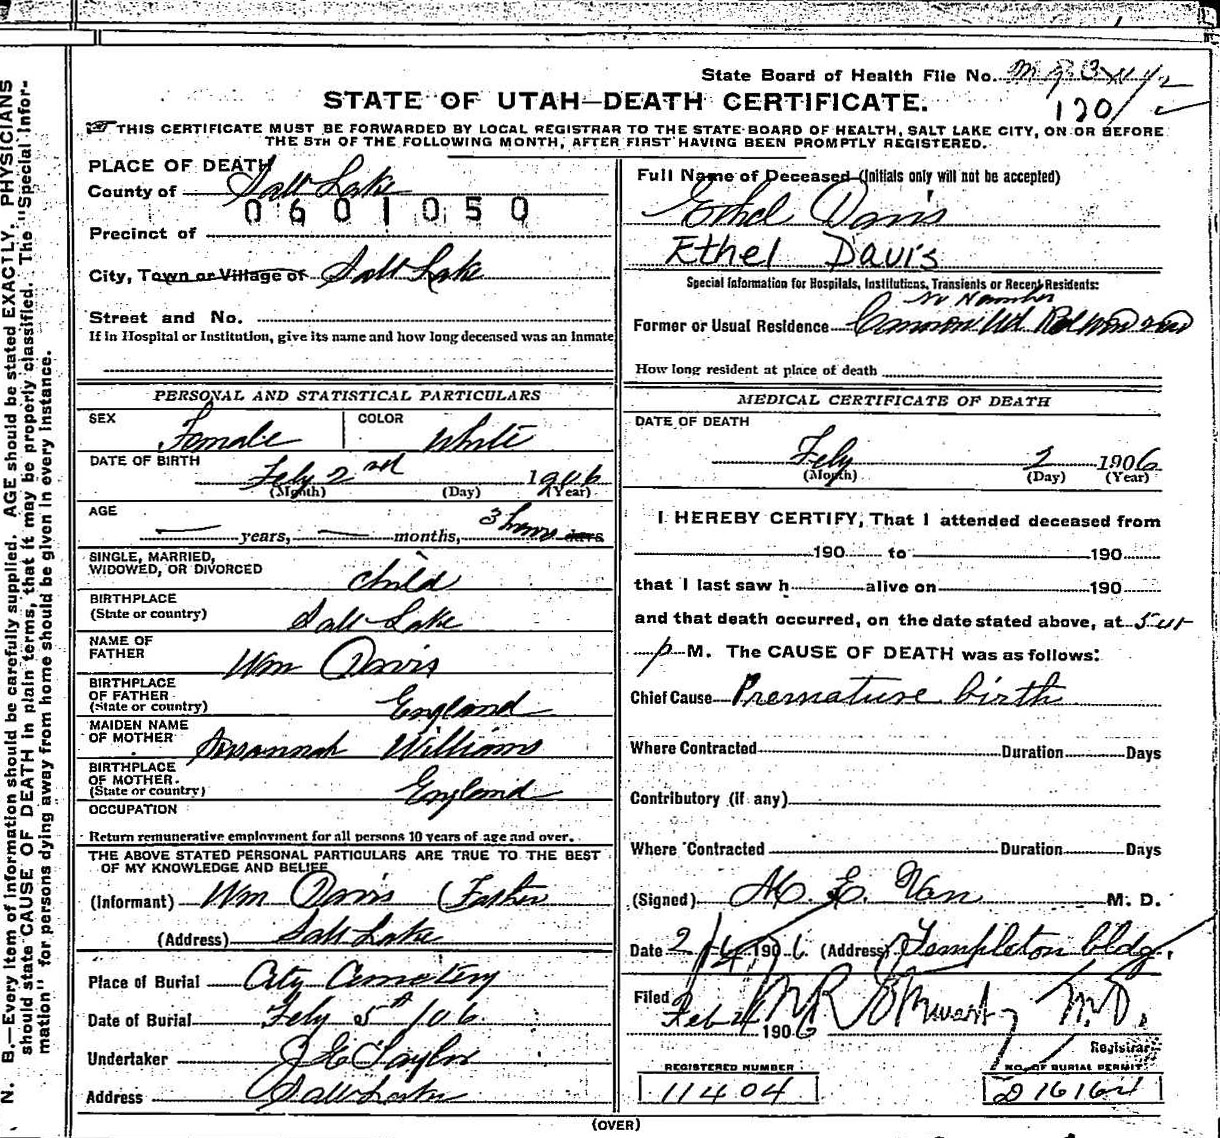 State Board of Health File No.
120
STATE OF UTAH—DEATH CERTIFICATE.
THIS CERTIFICATE MUST BE FORWARDED BY LOCAL REGISTRAR TO THE STATE BOARD OF HEALTH, SALT LAKE CITY, ON OR BEFORE
THE 5TH OF THE FOLLOWING MONTH, AFTER FIRST HAVING BEEN PROMPTLY REGISTERED.
N. B.—Every item of information should be carefully supplied. AGE should be stated EXACTLY. PHYSICIANS
should state CAUSE OF DEATH in plain terms, that it may be properly classified. The "Special Infor-
mation" for persons dying away from home should be given in every instance.
PLACE OF DEATH
County of Salt Lake
0601050
Precinct of
City, Town or Village of Salt Lake
Street and No.
If in Hospital or Institution, give its name and how long deceased was an Inmate
PERSONAL AND STATISTICAL PARTICULARS
SEX Female COLOR White
DATE OF BIRTH Feby 2nd 1906
(Month) (Day) (Year)
AGE
years, months, 3 hours days
SINGLE, MARRIED,
WIDOWED, OR DIVORCED child
BIRTHPLACE
(State or country) Salt Lake
NAME OF
FATHER Wm Davis
BIRTHPLACE
OF FATHER
(State or country) England
MAIDEN NAME
OF MOTHER Susannah Williams
BIRTHPLACE
OF MOTHER.
(State or country) England
OCCUPATION
Return remunerative employment for all persons 10 years of age and over.
THE ABOVE STATED PERSONAL PARTICULARS ARE TRUE TO THE BEST
OF MY KNOWLEDGE AND BELIEF
(Informant) Wm Davis (Father
(Address) Salt Lake
Place of Burial City Cemetery
Date of Burial Feby 5th 06
Undertaker J E Taylor
Address Salt Lake
Full Name of Deceased (Initials only will not be accepted)
Ethel Davis
Ethel Davis
Special Information for Hospitals, Institutions, Transients or Recent Residents:
no Number
Former or Usual Residence
How long resident at place of death
MEDICAL CERTIFICATE OF DEATH
DATE OF DEATH
Feby 2 1906
(Month) (Day) (Year)
I HEREBY CERTIFY, That I attended deceased from
190 to 190
that I last saw h alive on 190
and that death occurred, on the date stated above, at
p M. The CAUSE OF DEATH was as follows:
Chief Cause Premature birth
Where Contracted Duration Days
Contributory (if any)
Where Contracted Duration Days
(Signed) Van M. D.
Date 2/4 1906 (Address) Templeton bldg.
Filed Feb 4 1906 M.D.
Registrar
REGISTERED NUMBER NO. OF BURIAL PERMIT
11404 D16164
(OVER)